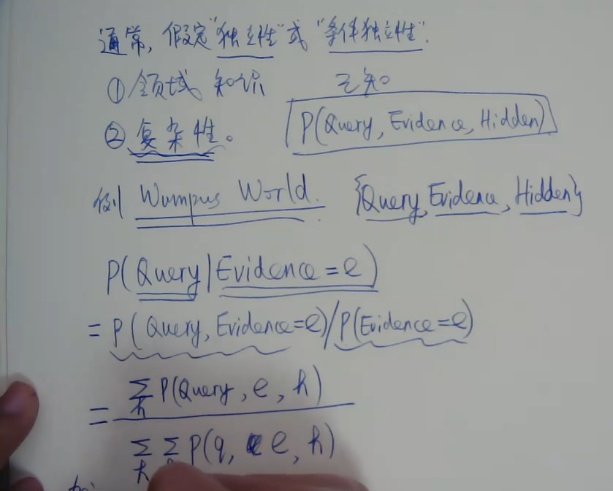 通常,假定"独立性"或"条件独立性".
①领域 知识 已知
②复杂性。 P(Query, Evidence, Hidden)
例 Wumpus World. {Query, Evidence, Hidden}
P(Query|Evidence=e)
= P(Query, Evidence=e)/P(Evidence=e)
= Σh P(Query, e, h)
Σh Σ P(q, e, h)